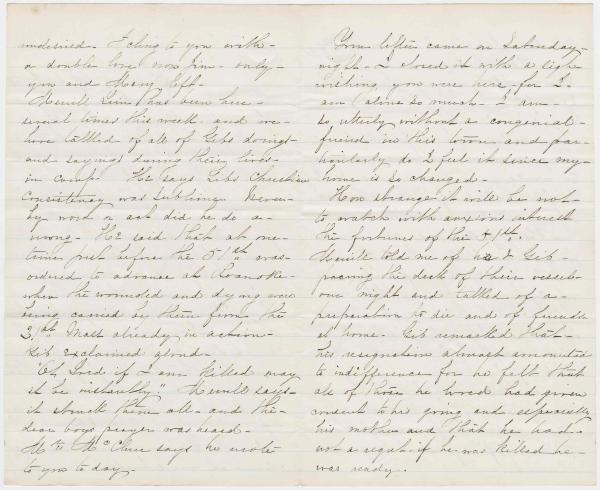 undesired. I cling to you with-
a double love now Jim - only-
you and Mary left-
Merrill has been here-
several times this week and we-
have talked of all of Gibs doings-
and sayings during their lives-
in camp. He says Gibs Christian
Consistency was sublime. Never-
by word or act did he do a-
wrong. He said that at one-
time just before the 51st was-
ordered to advance at Roanoke-
when the wounded and dying were
being carried by them from the
21st Mass already in action-
Gib exclaimed aloud-
"Oh, Lord if I am killed may
it be instantly" Merrill says-
it struck them all- and the-
dear boys prayer was heard-
Mr McClure says he wrote
to you to day-
Your letter came on Saturday-
night- I closed it with a sigh
wishing you were here, for I-
am alone so much- I am-
so utterly without a congenial-
friend in this town- and par-
ticularly do I feel it since my-
home is so changed-
How strange it will be not-
to watch with anxious interest
the fortunes of the 51st.
Merrill told me of he & Gib-
pacing the deck of their vessel-
one night and talked of a-
preparation to die and of friends
at home- Gib remarked that-
his resignation almost amounted
to indifference for he felt that
all of those he loved had given
consent to his going and especially
his mother and that he had-
not a regret- if he was killed he-
was ready.